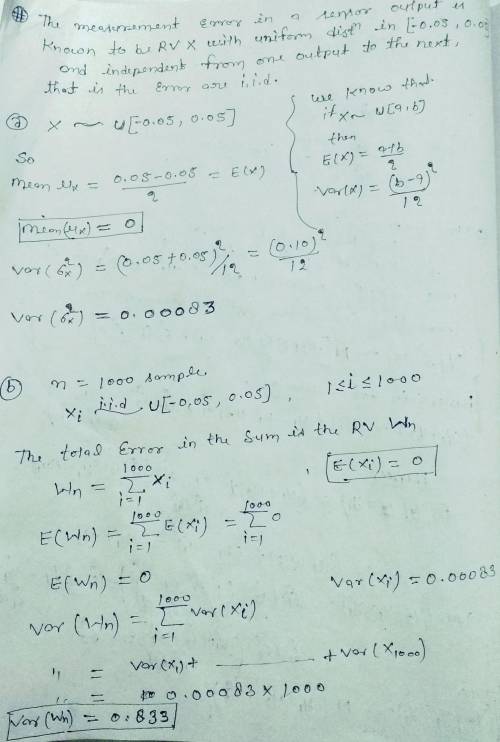 The measurement Error in a sensor output is
Known to be RV X with uniform distn in [-0.05, 0.05]
and independent from one output to the next,
that is the Error are i.i.d.
(a) X ~ U[-0.05, 0.05]
we know that
if X~ U[a,b]
then
E(X) = a+b/2
Var(X) = (b-a)²/12
So
mean μx = 0.05-0.05/2 = E(X)
mean(μx) = 0
Var(σx²) = (0.05+0.05)²/12 = (0.10)²/12
Var(σx²) = 0.00083
(b) n = 1000 sample.
Xi i.i.d U[-0.05, 0.05], 1≤i≤1000
The total Error in the Sum is the RV Wn
Wn = 1000Σi=1 Xi , E(Xi) = 0
E(Wn) = 1000Σi=1 E(Xi) = 1000Σi=1 0
E(Wn) = 0 Var(Xi) = 0.00083
Var(Wn) = 1000Σi=1 Var(Xi)
" = Var(X1) + ------ + Var(X1000)
" = 0.00083 x 1000
Var(Wn) = 0.833